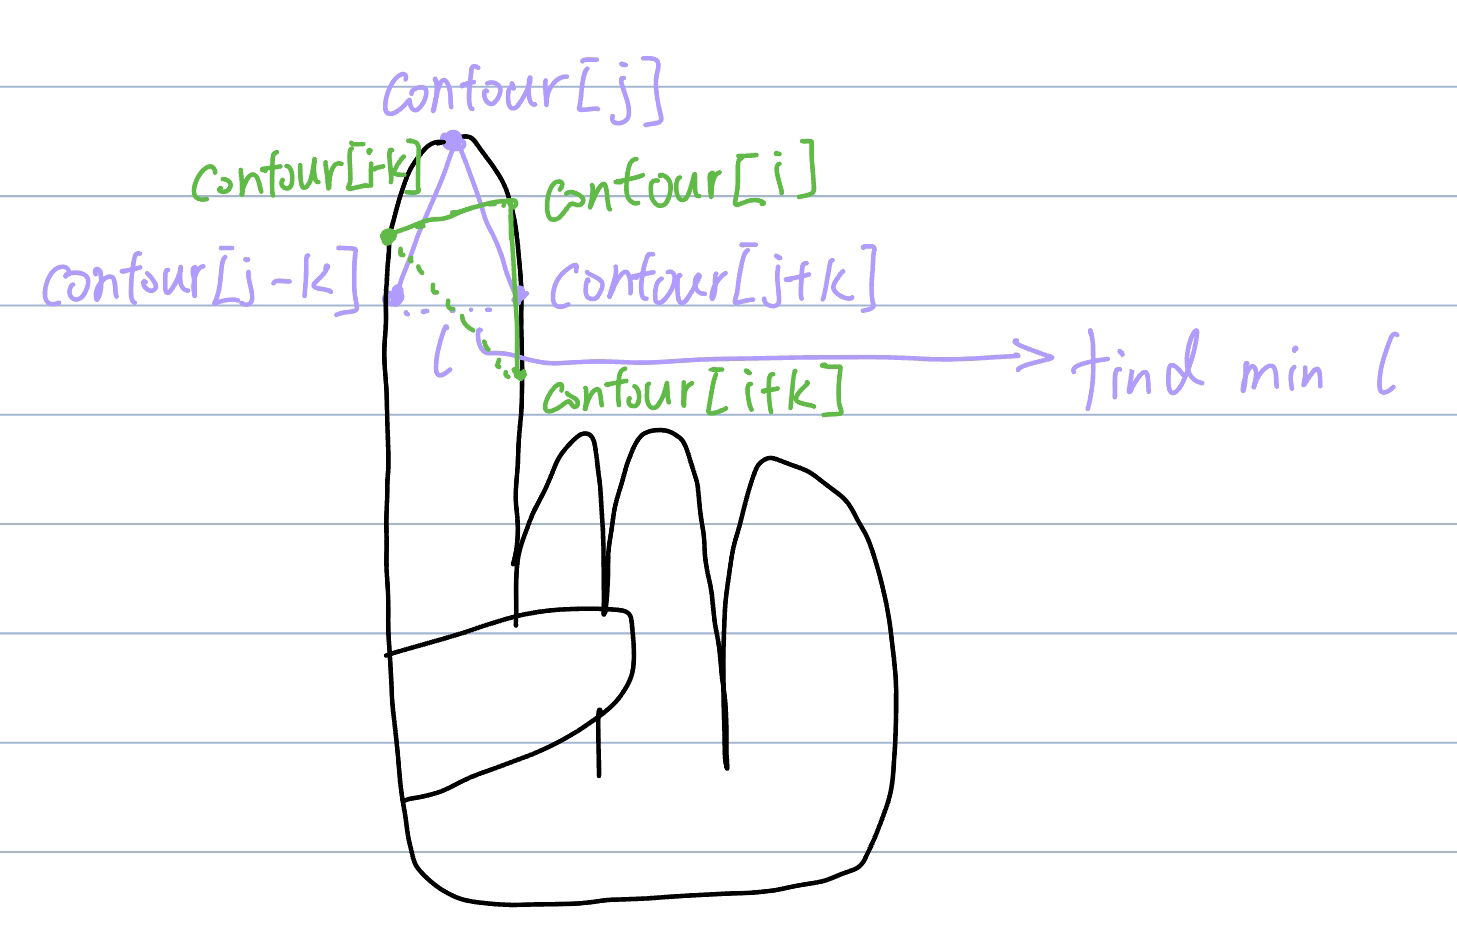 contour[j]
contour[i-k]
contour[i]
contour[j-k]
contour[j+k]
l
find min l
contour[i+k]